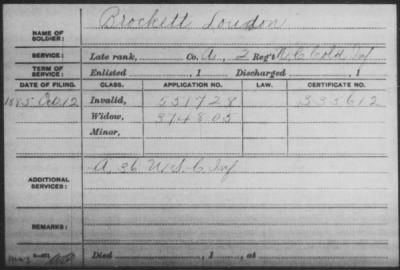 Brockett, Loudon
NAME OF SOLDIER:
SERVICE: Late rank, Co. A, 2 Reg't N.C. Cold Inf
TERM OF SERVICE: Enlisted , 1 Discharged , 1
DATE OF FILING. CLASS. APPLICATION NO. LAW. CERTIFICATE NO.
1885 Oct 12 Invalid, 551728 335612
Widow, 974805
Minor,
ADDITIONAL SERVICES: A, 36 U.S.C. Inf
REMARKS:
Died , 1 , at